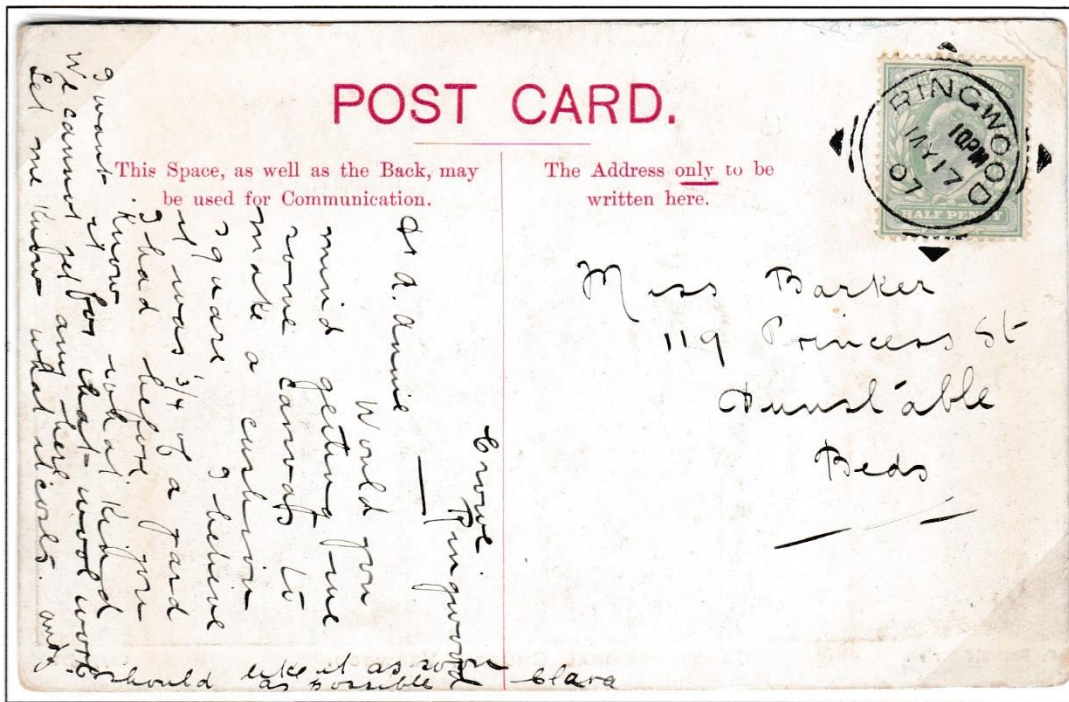 POST CARD.
This Space, as well as the Back, may
be used for Communication.
The Address only to be
written here.
RINGWOOD
10PM
MY 17
07
HALF PENNY
Miss Barker
119 Princess St
Dunstable
Beds
Crowe
Ringwood
Dr A. Annie
Would you
mind getting me
some canvas to
make a cushion
square I believe
it was 3/4 of a yard
I had before. you
know what kind
I want it for that wool work
We cannot get any here
Let me know what it costs. and
should like it as soon
as possible Clara